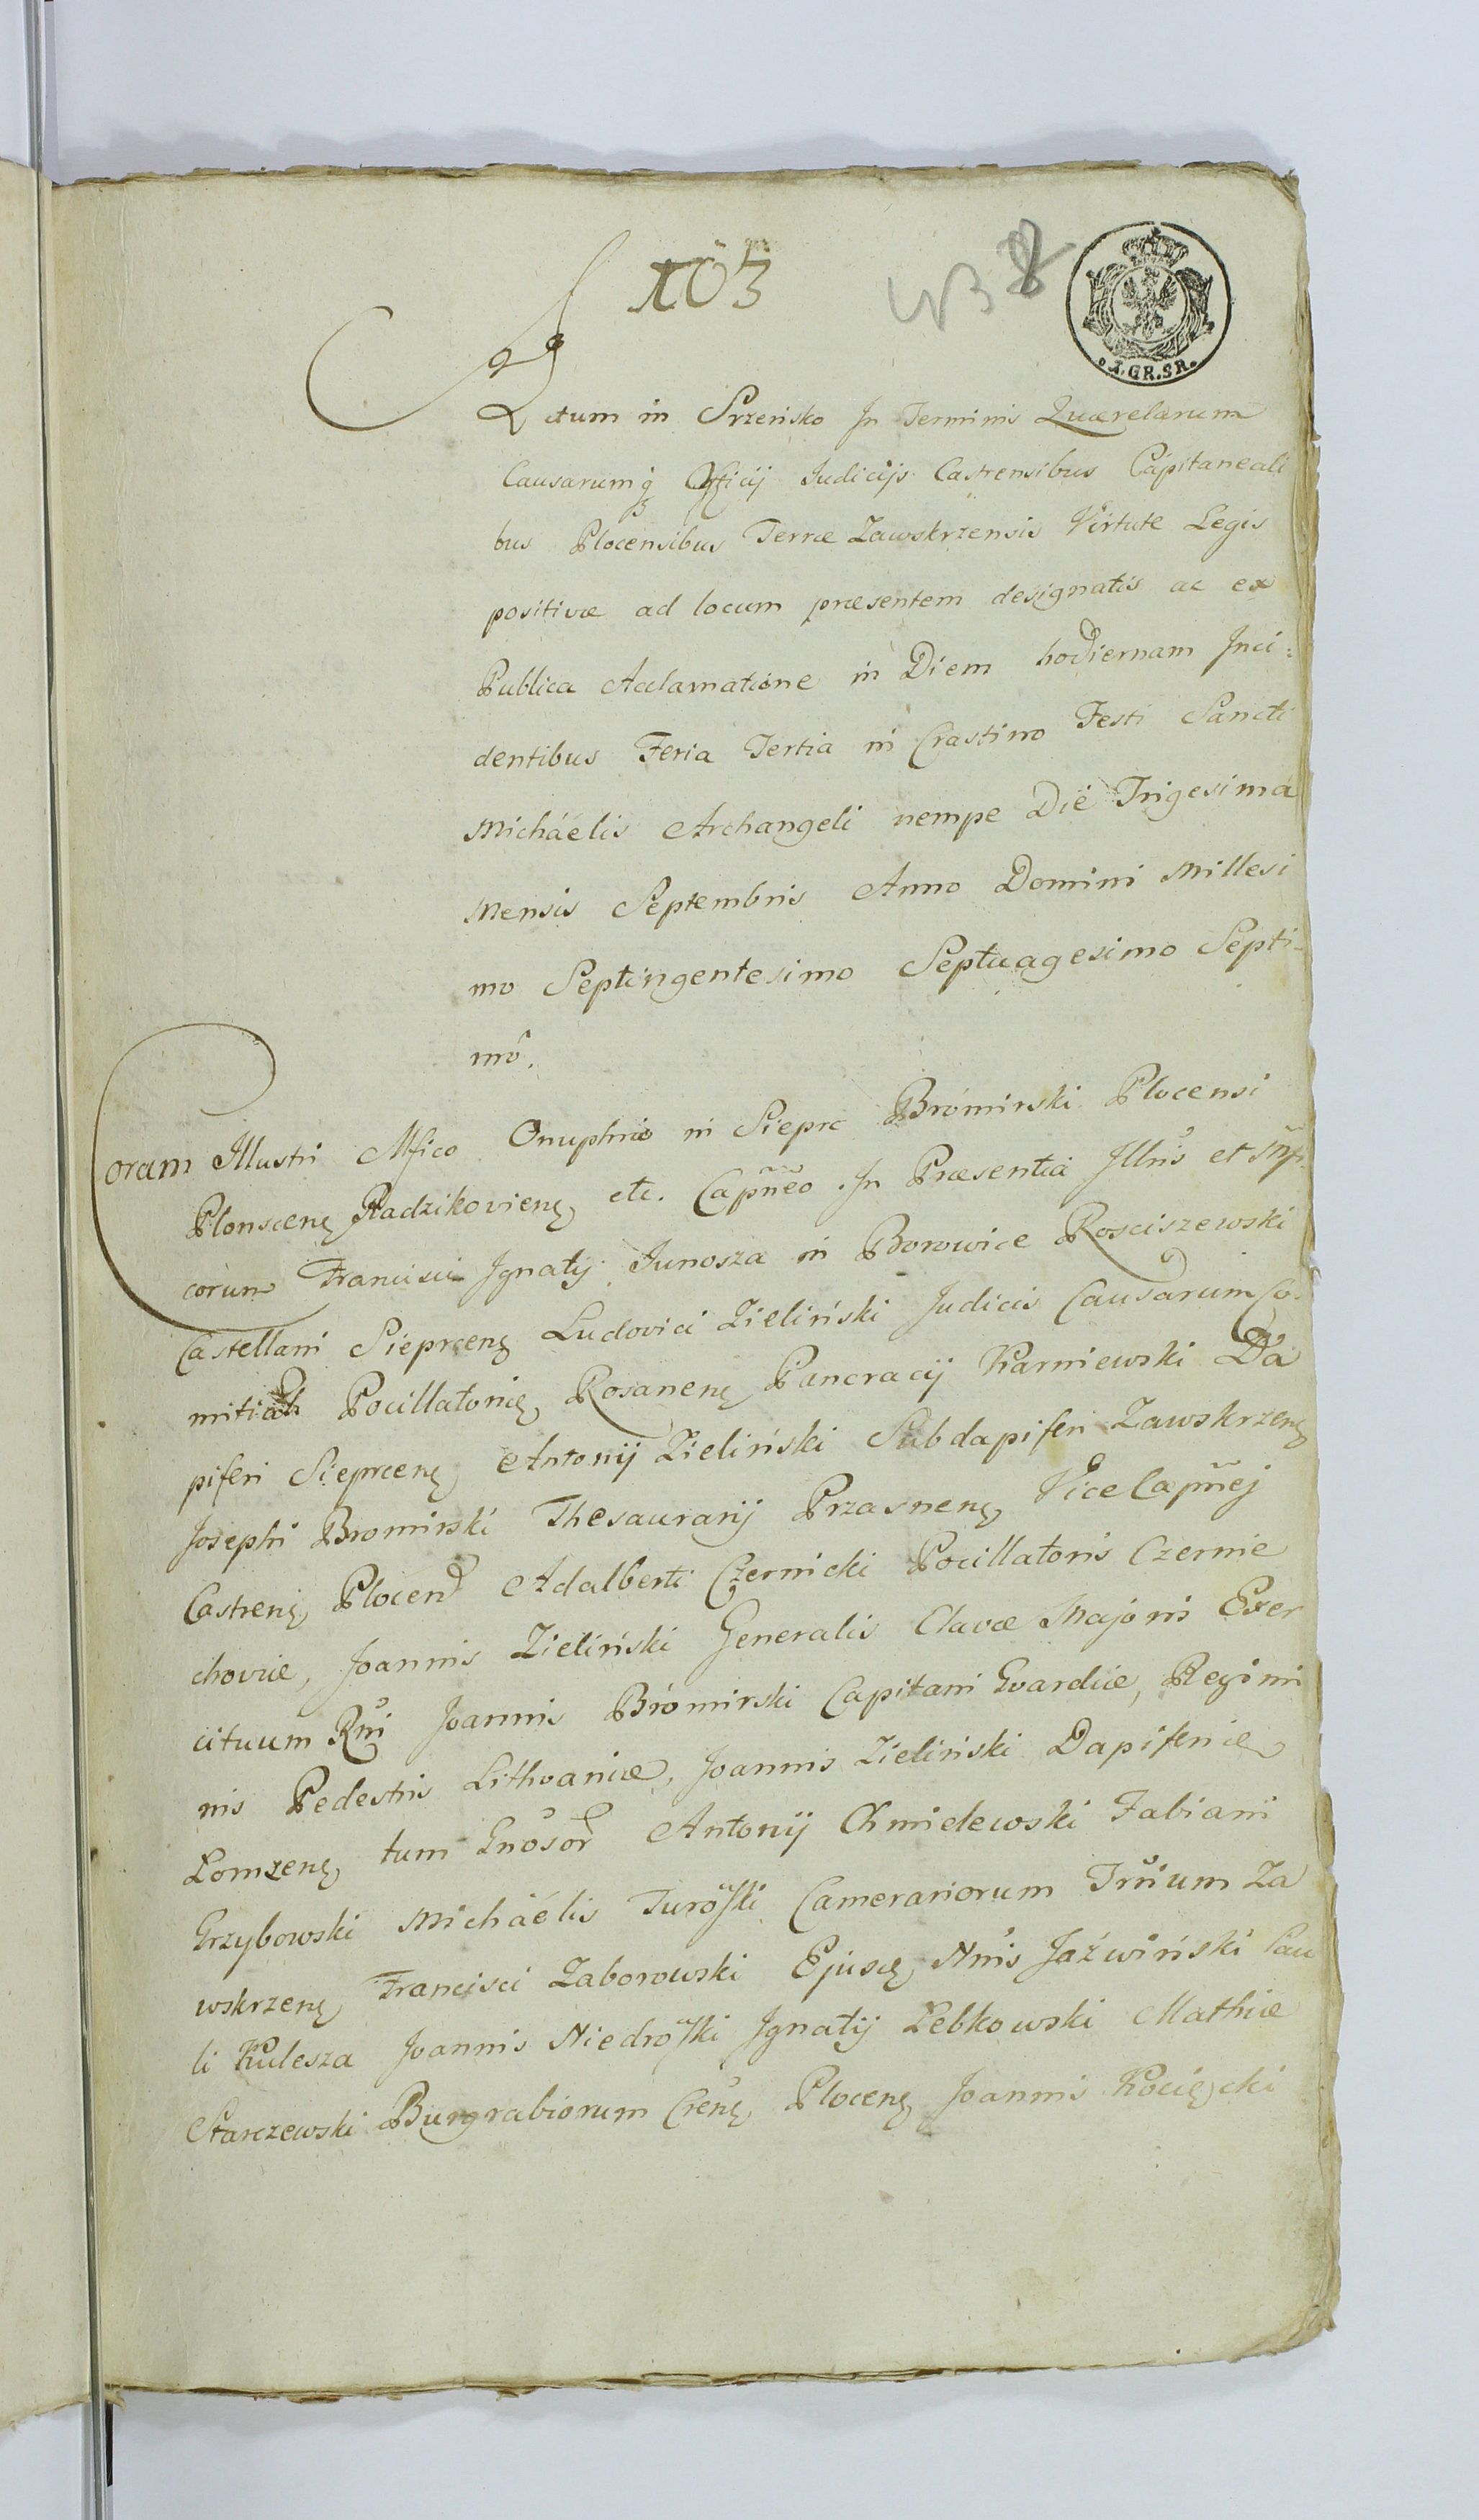 103
438
o.I.GR.SR.
Actum in Srzeńsko In Terminis Quærelarum
Causarumq3 Officij Iudicijs Castrensibus Capitaneali
bus Plocensibus Terræ Zawskrzensis Virtute Legis
positivæ ad locum præsentem designatis ac ex
Publica Acclamatione in Diem hodiernam Inci:
dentibus Feria Tertia in Crastino Festi Sancti
Micháélis Archangeli nempe Die Trigesima
Mensis Septembris Anno Domini Millesi
mo Septingentesimo Septuagesimo Septi-
mô.
Coram Illustri Mfico Onuphrio in Sieprc Brómirski Plocensi
Plonscenẹ Radzikovienẹ etc. Capñeo. In Præsentia Illris et Mfi
corum Francisci Ignatij Junosza in Borowice Rosciszewski
Castellani Sieprcenẹ Ludovici Zieliński Judicis Causarum Co
mitial Pocillatoris Rosanenẹ Pancracij Karniewski Da
piferi Sieprcenẹ Antonij Zieliński Subdapiferi Zawskrzenẹ
Josephi Bromirski Thesaurarij Przasnenẹ Vice Capñej
Castrenẹ Plocen Adalberti Czernicki Pocillatoris Czernie
choviæ, Joannis Zieliński Generalis Clavæ Majoris Exer
cituum Rni Joannis Brómirski Capitani Gvardiæ, Regimi
nis Pedestris Lithvaniæ, Joannis Zieliński Dapiferiæ
Lomzenẹ tum Gnosor Antonij Chmielewski Fabiani
Grzybowski Micháélis Turoski Camerariorum Trium Za
wskrzenẹ Francisci Zaborowski Ejuscẹ Nris Jaźwiński Pau
li Kulesza Joannis Niedroski Ignatij Lebkowski Mathiæ
Starczewski Burgrabiorum Crenẹ Plocenẹ Joannis Kocięcki